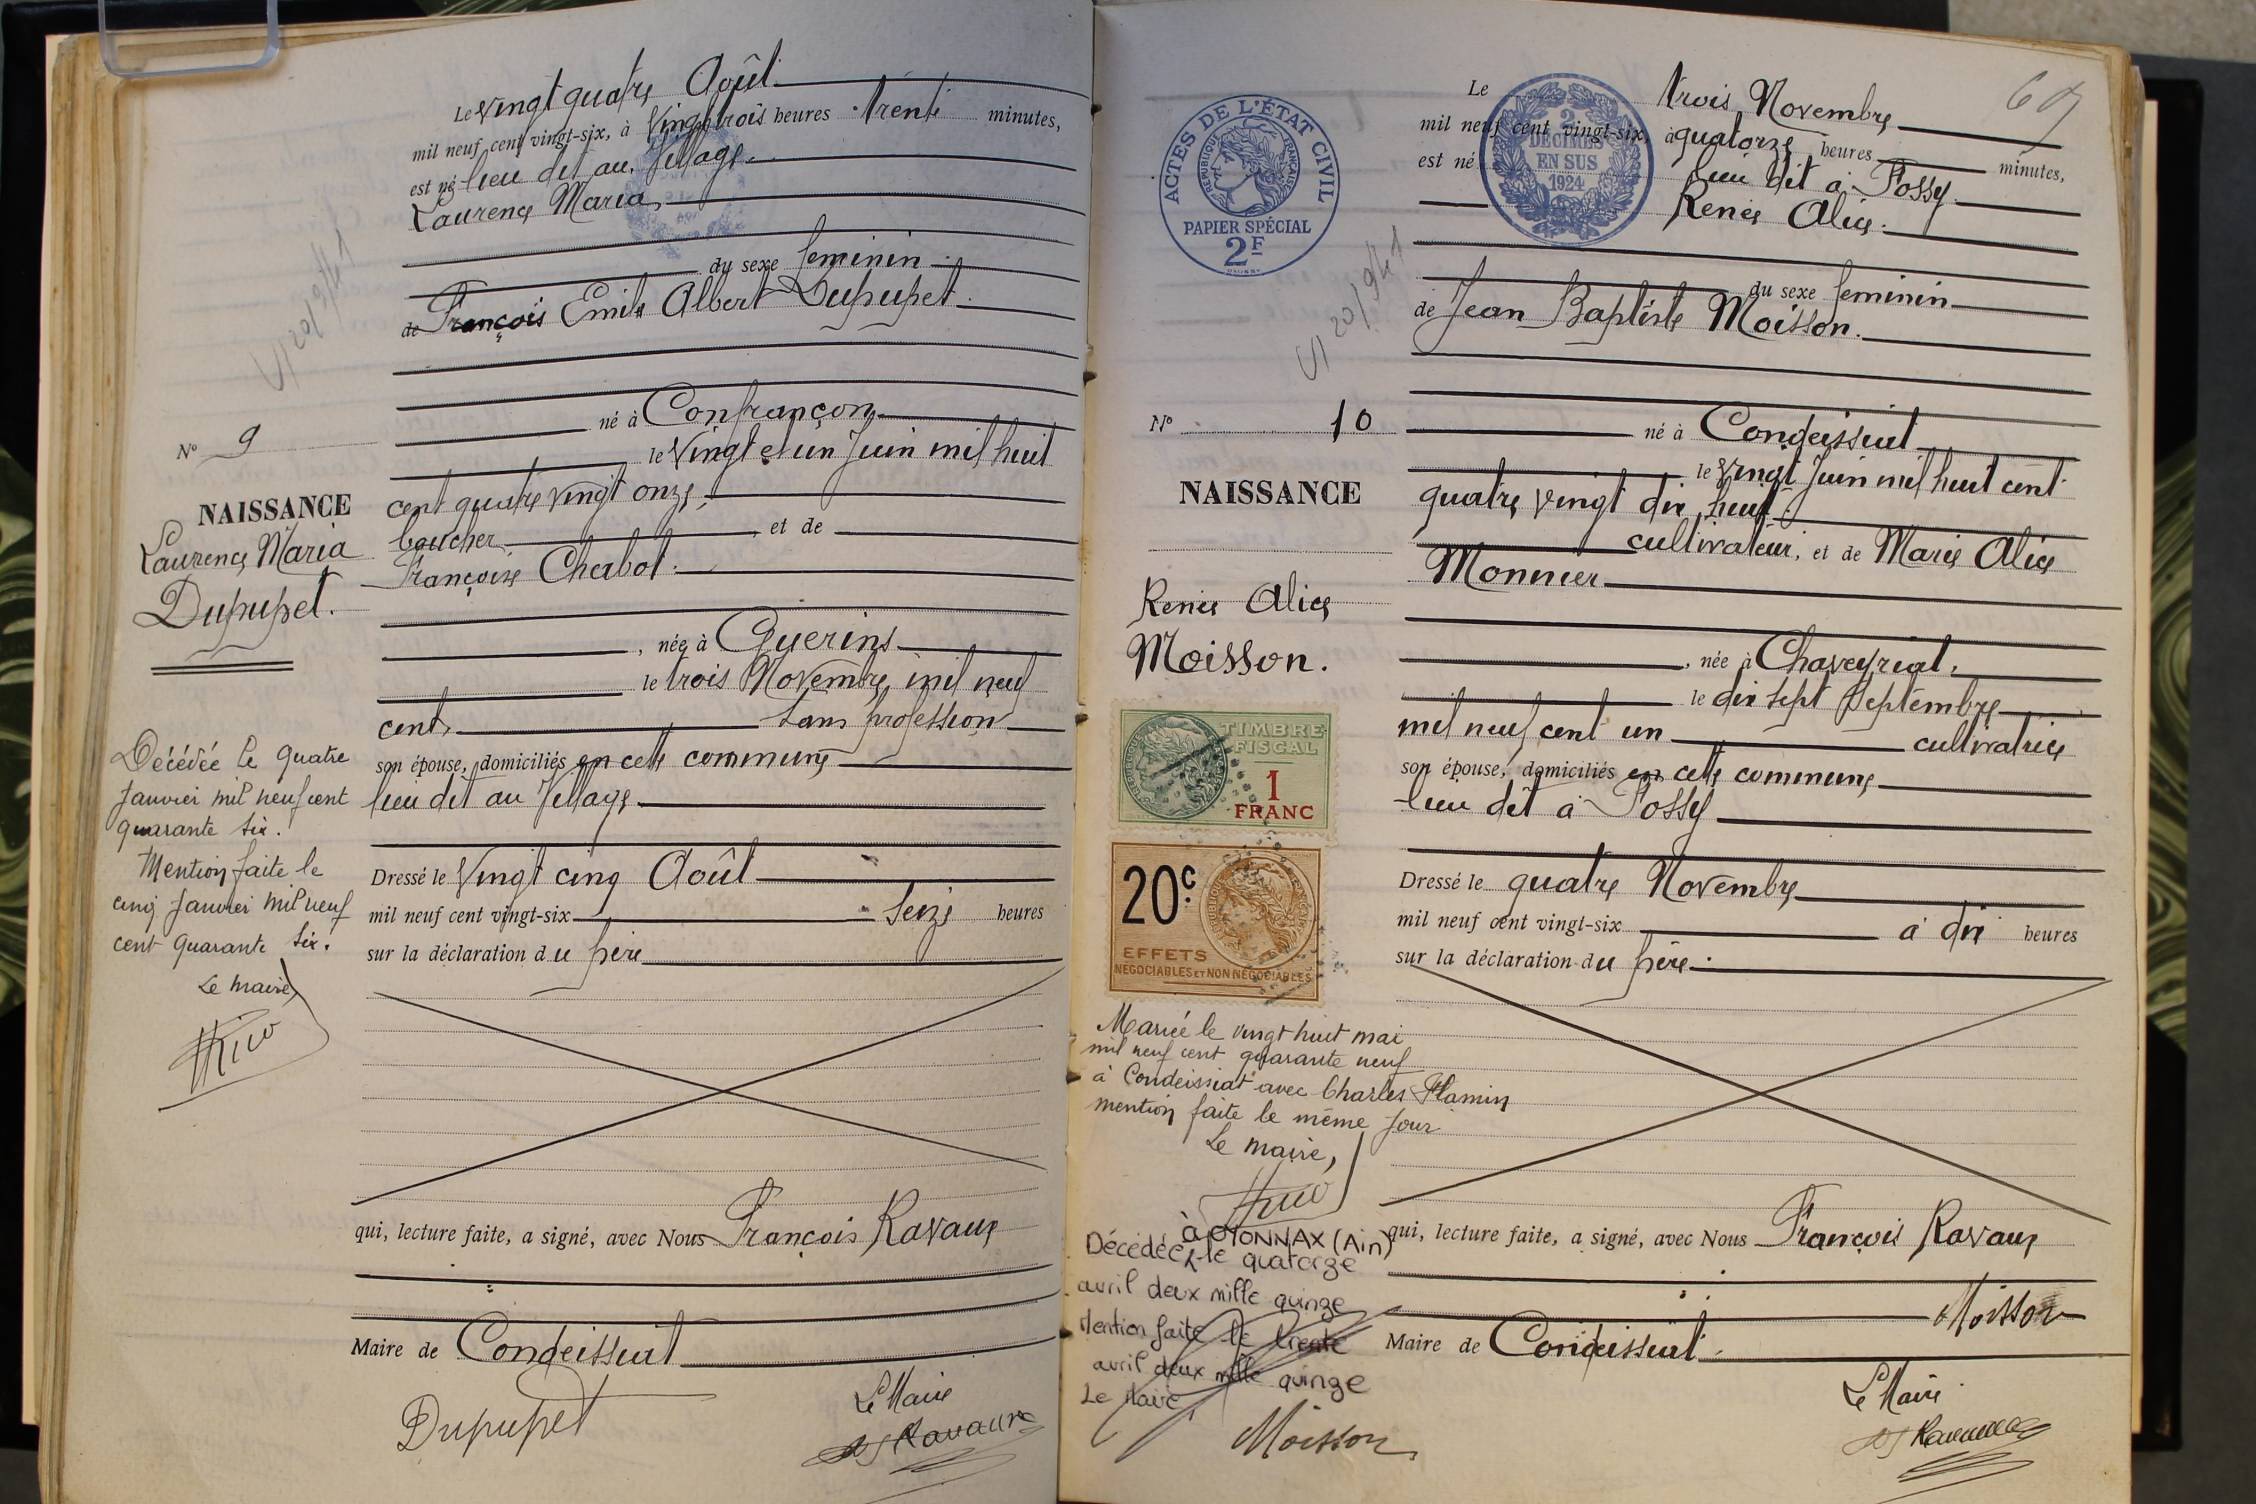 Le vingt quatre Août
mil neuf cent vingt-six, à Vingt trois heures trente minutes,
est né lieu dit au Village
Laurence Maria
du sexe feminin
de François Emile Albert Dupupet
né à Confrançon
le Vingt et un Juin mil huit
cent quatre vingt onze
boucher et de
Françoise Chabot
, née à Guerins
le trois Novembre mil neuf
cent, sans profession
son épouse, domiciliés en cette commune
lieu dit au Village
Dressé le Vingt cinq Août
mil neuf cent vingt-six Seize heures
sur la déclaration du père
qui, lecture faite, a signé, avec Nous François Ravaux
Maire de Condeissiat
Le Maire
Dupupet
Ravaux
N° 9
NAISSANCE
Laurence Maria
Dupupet.
Décédée le quatre
Janvier mil neuf cent
quarante six.
Mention faite le
cinq Janvier mil neuf
cent quarante six.
Le maire
60
ACTES DE L'ÉTAT CIVIL
RÉPUBLIQUE FRANÇAISE
PAPIER SPÉCIAL
2F
2
DÉCIMES
EN SUS
1924
Le trois Novembre
mil neuf cent vingt-six, à quatorze heures minutes,
est né lieu dit à Fossy
Renée Alice.
du sexe feminin
de Jean Baptiste Moisson.
né à Condeissiat
le vingt Juin mil huit cent
quatre vingt dix huit
cultivateur, et de Marie Alice
Monnier
, née à Chaveyriat,
le dix sept Septembre
mil neuf cent un cultivatrice
son épouse, domiciliés en cette commune
lieu dit à Fossy
Dressé le quatre Novembre
mil neuf cent vingt-six à dix heures
sur la déclaration du père.
qui, lecture faite, a signé, avec Nous François Ravaux
Moisson
Maire de Condeissiat.
Le Maire
Ravaux
N° 10
NAISSANCE
Renée Alice
Moisson.
TIMBRE
FISCAL
1
FRANC
20c.
EFFETS
NÉGOCIABLES ET NON NÉGOCIABLES
Mariée le vingt huit mai
mil neuf cent quarante neuf
à Condeissiat avec Charles Flamin
mention faite le même jour
Le maire,
à OYONNAX (Ain)
Décédée le quatorze
avril deux mille quinze
Mention faite le trente
avril deux mille quinze
Le Maire,
Moisson